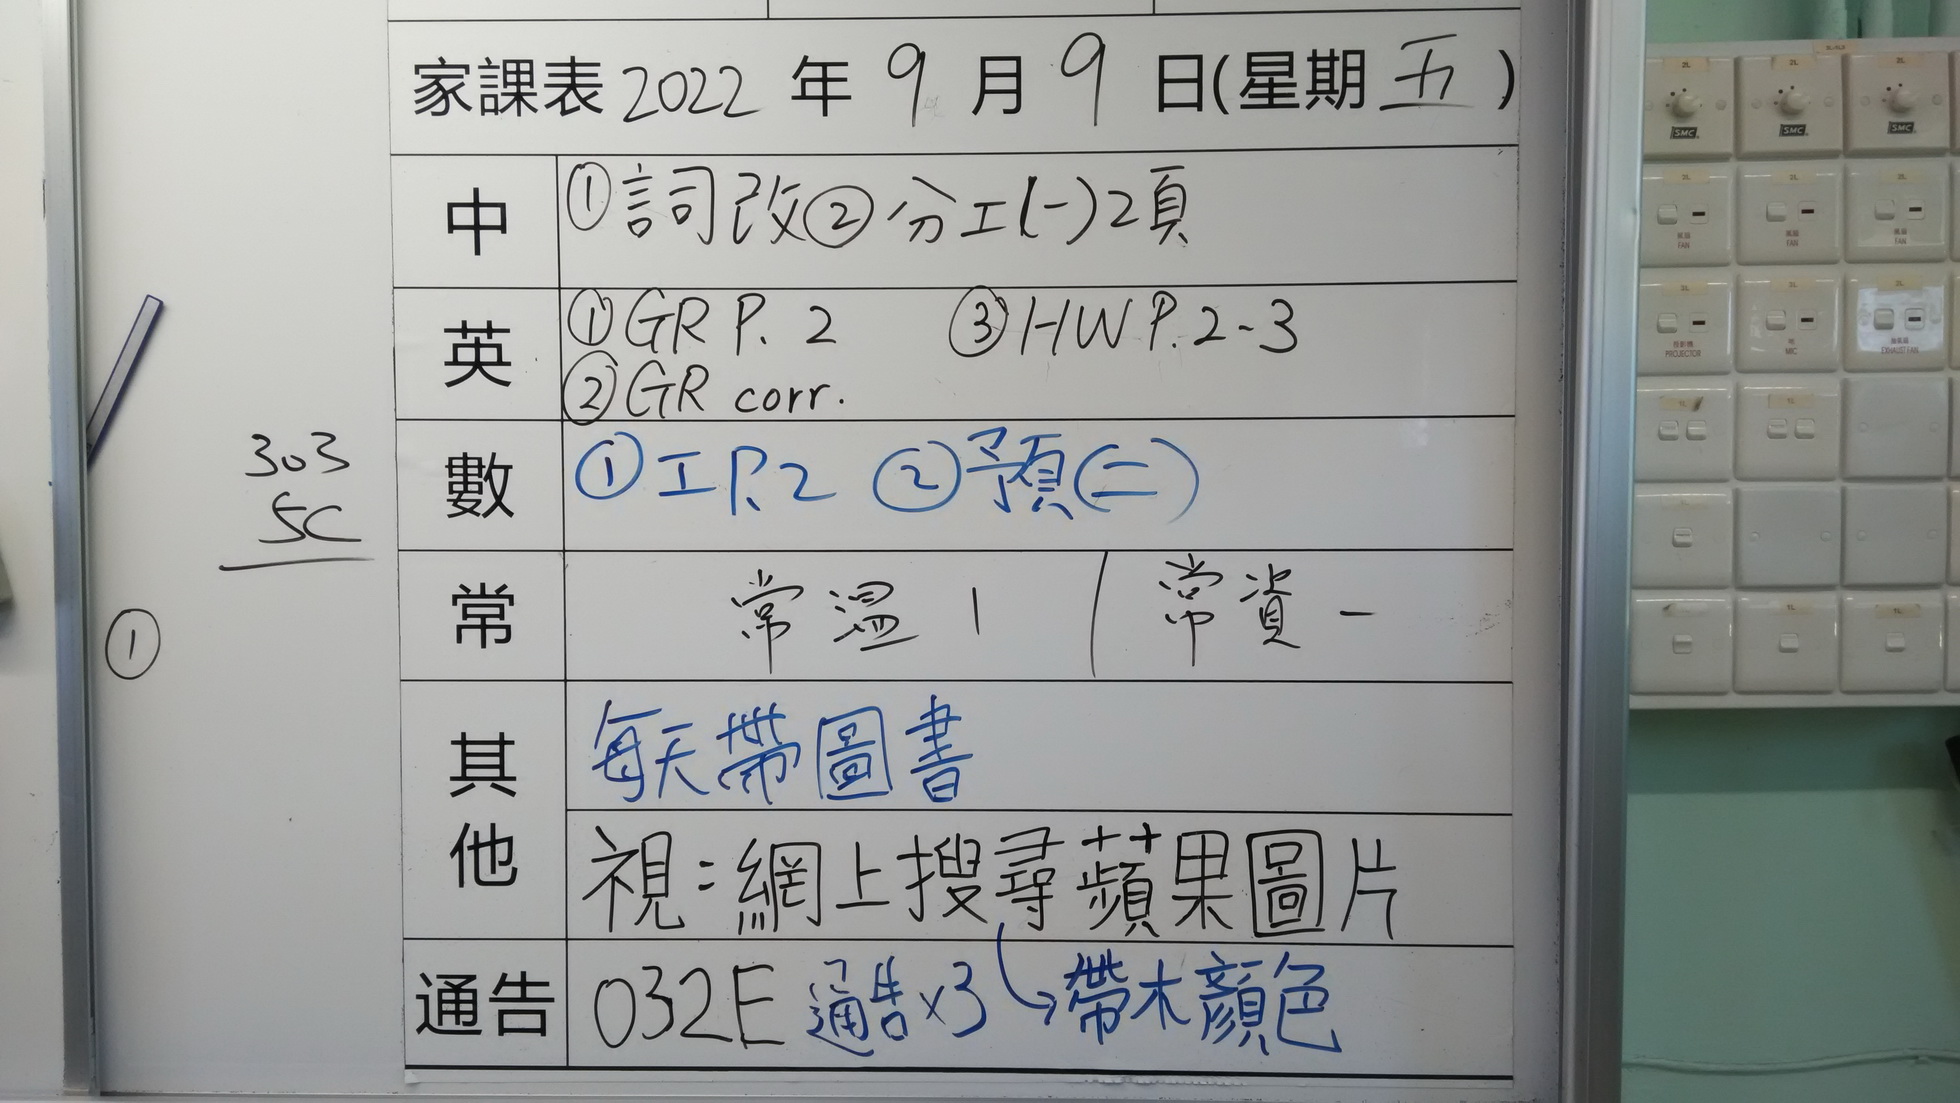 家課表 2022 年 9 月 9 日(星期 五 )
中 ①詞改②分工(一)2頁
英 ①GR P. 2 ③HW P.2-3
②GR corr.
數 ①工 P.2 ②預(二)
常 常溫 1 / 常資一
其他 每天帶圖書
視:網上搜尋蘋果圖片
通告 032E 通告x3 帶木顏色
303
5C
①
SMC SMC SMC
FAN FAN FAN
PROJECTOR MIC EXHAUST FAN